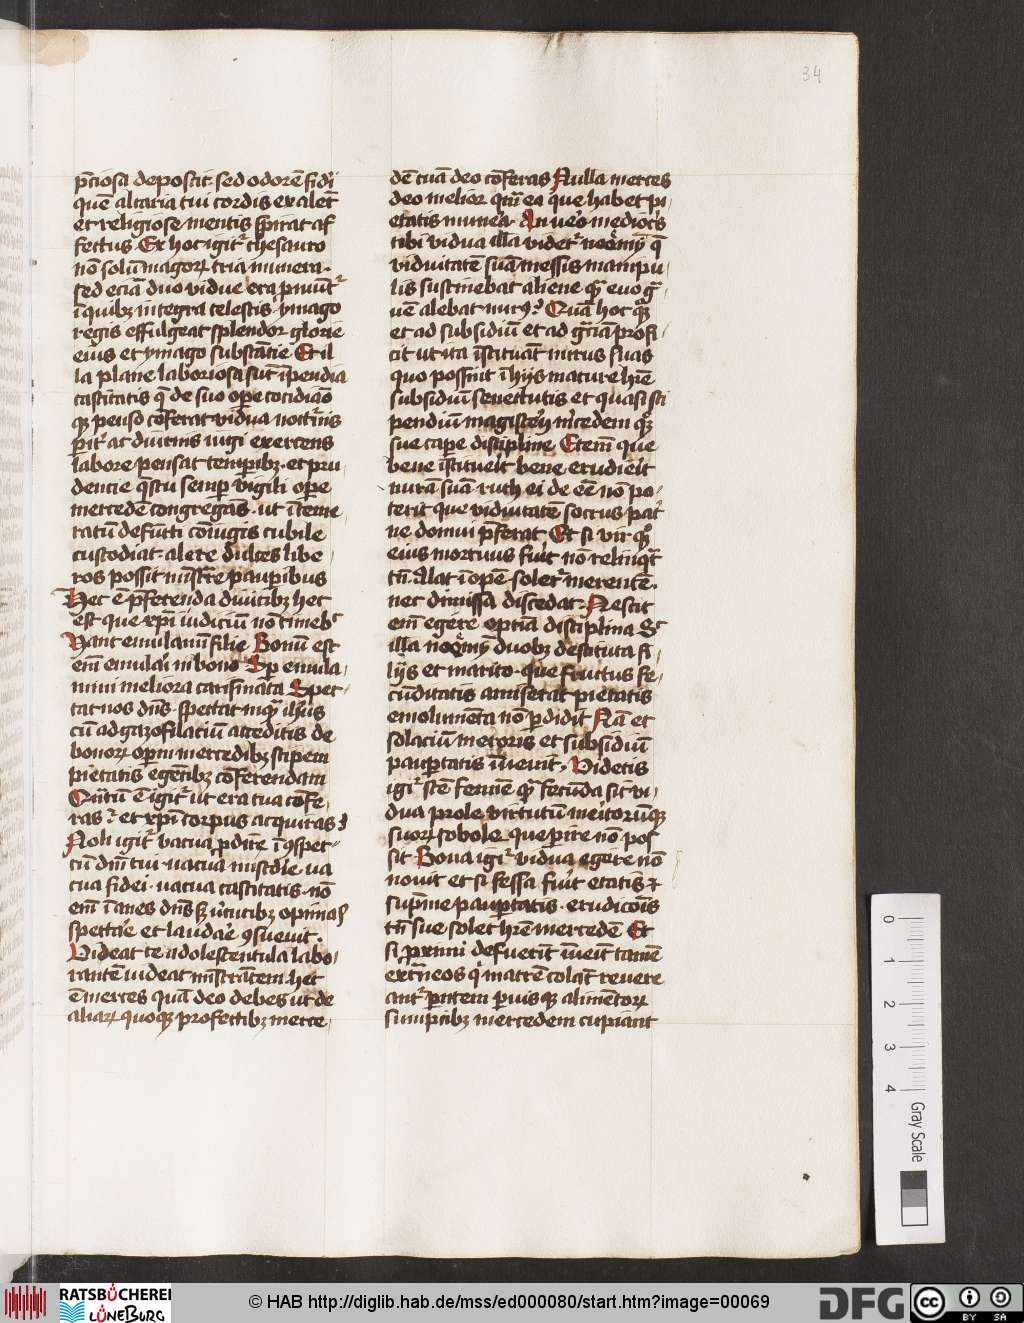 34
p̄ciosa deposcit. sed odorē fidei
quē altaria tui cordis exalēt
et religiose mentis spirat af
fectus. Ex hoc igit᷑ thesauro
nō solū magoꝝ tria munera.
sed eciā duo vidue era p̄muūt᷑
ī quibꝫ integra celestis ymago
regis effulgeat splendor glorie
eius et ymago substātie Et il
la plane laboriosa sūt īpendia
castitatis q̄ de suo ope cotidiāo
qꝫ penso cōferat vidua nocturnis
pit᷑ ac diurnis iugi exercens
labore pensat temporibꝫ. et pru
dencie q̄stu semp vigili ope
mercedē congregās. ut ī teme
ratū defūcti cōiugis cubile
custodiat. alere dulces libe
ros possit mīstrare paupibus
Hec ē p̄ferenda divitibꝫ hec
est que xp̄i iudiciū nō timeb᷑
Hanc emulamī filie Bonū est
em̄ emulari in bono Sp emula
mini meliora carismata Spec
tat nos dn̄s. spectat inqm̄ ihūs
cū ad gazofilaciū acceditis de
bonoꝝ opm mercedibꝫ stipem
pietatis egētibꝫ cōferendam
Quātū ē igit᷑ ut era tua cōfe
ras. et xp̄i corpus acquiras
Noli igit᷑ vacua prodire ī ꝯspec
tū dn̄i tui. vacua misc̄die. va
cua fidei. vacua castitatis. nō
em̄ īanes dn̄s sꝫ v̄tutibꝫ opimas
spectare et laudare ꝯsuevit.
Videat te adolescentula labo
rantē videat mīstrātem. hec
ē merces quā deo debes ut de
aliaꝝ quoqꝫ profectibꝫ merce
dē tuā deo cōferas Nulla merces
deo melior qm̄ ea que habet pi
etatis munera. An vero mediocris
tibi vidua illa videt᷑ noemy q̄
viduitatē suā messis manipu
lis sustinebat aliene quā evo g̃
vē alebat nurꝯ Quā hoc qꝫ
et ad subsidiū et ad gr̄am profi
cit ut ita īstituāt nurus suas
quo possint ī hijs mature hr̄e
subsidiū senectutis et quasi sti
pendiū magisterij m̄cedem qꝫ
sue cape discipline Etem̄ que
bene īstituerit bene erudierit
nurū suā ruth ei deesse nō po
terit que viduitatē socrus pat᷑
ne domui p̄ferat Et si vir qꝫ
eius mortuus fuerit nō relinqt᷑
tn̄. Alat īopē. solet᷑ merentē.
nec dimissa discedat. Nescit
em̄ egere optia disciplina S᷑
illa noemy duobꝫ destituta fi
lijs et marito. que fructus fe
cūditatis amiserat pietatis
emolumēta nō p̄didit Nā et
solaciū meroris et subsidiū
paupertatis īvenit. Videtis
igit᷑ scē femine quā fecūda sit vi
dua prole virtutū meritorūqꝫ
suoꝝ sobole. que perire nō pos
sit Bona igit᷑ vidua egere nō
novit et si fessa fuerit etatis et
supine paupertatis. erudiconis
tn̄ sue solet hr̄e mercedē Et
si prximi defuerīt īveīt tamē
extraneos qi matrē colāt. revere
ant᷑ pentem pvisqꝫ alimētoꝝ
sumptibꝫ mercedem cupiant
0 1 2 3 4
Gray Scale
RATSBÜCHEREI
LÜNEBURG
© HAB http://diglib.hab.de/mss/ed000080/start.htm?image=00069
DFG
cc BY SA